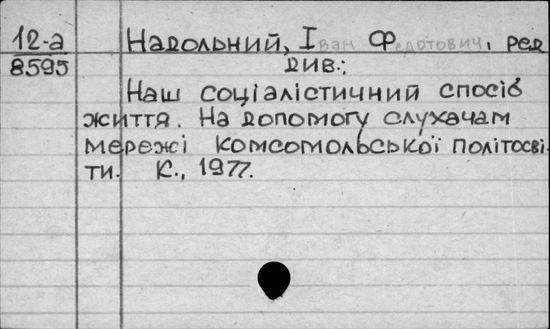 12-а
8595
Надольний, Іван Федотович, ред
див.:
Наш соціалістичний спосіб
життя. На допомогу слухачам
мережі комсомольської політосві-
ти. К., 1977.